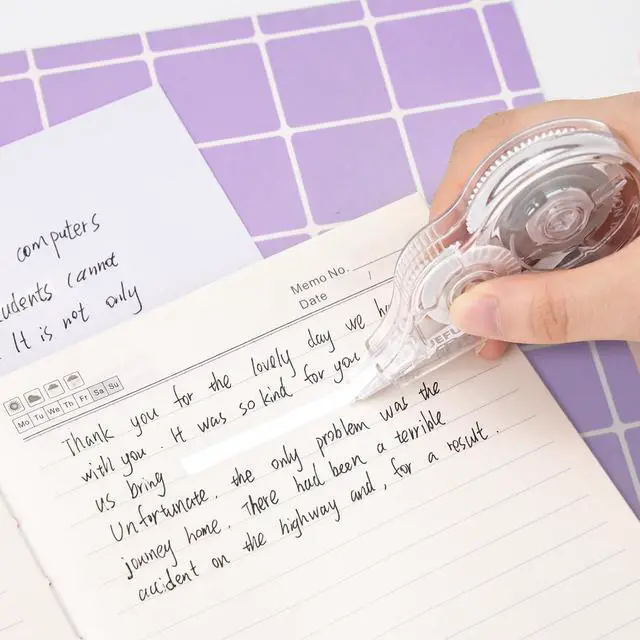 computers
cannot
It is not only
Memo No.
Date /
Mo Tu We Th Fr Sa Su
Thank you for the lovely day we
with you. It was so kind for you
us bring
Unfortunate. the only problem was the
journey home. There had been a terrible
accident on the highway and, for a result.